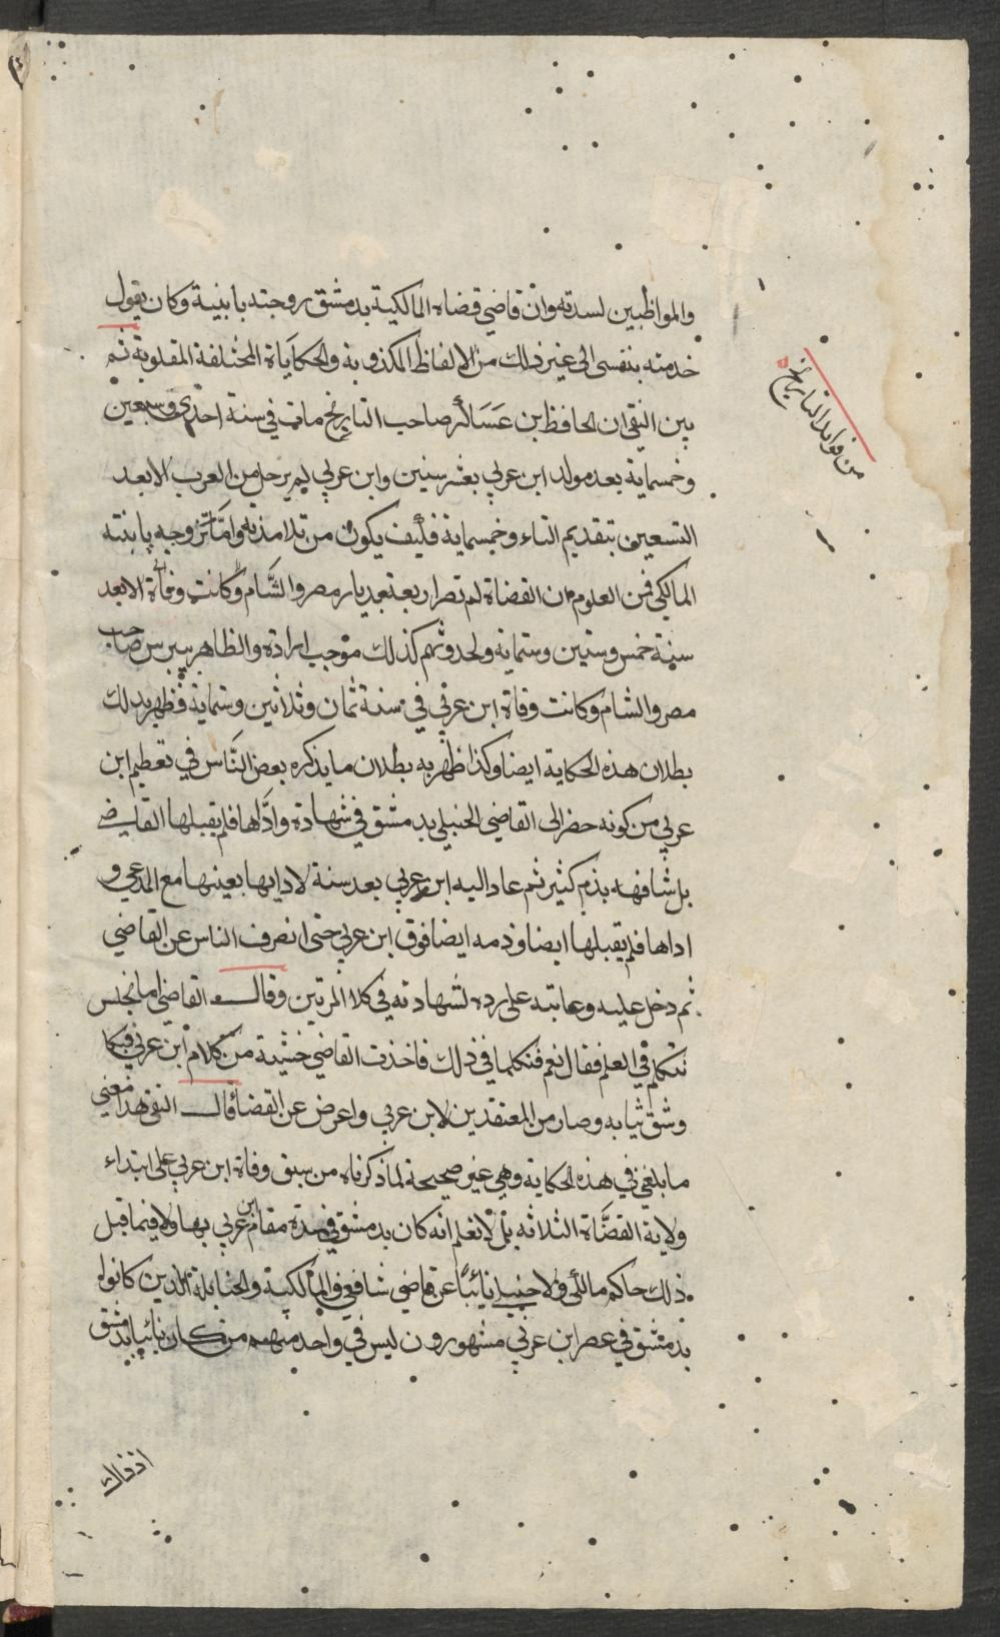 والمواظبين لسدته وان قاضي قضاه المالكية بدمشق زوجته بابنية وكان يقول
خدمته بنفسي الى غير ذلك من الالفاظ المكذوبة والحكاياة المختلفة المقلوبة ثم
بين التقي ان الحافظ بن عساكر صاحب التاريخ مات في سنة احدى وسبعين
وخمسماية بعد مولد ابن عربي بعشر سنين وابن عربي لم يرحل من الغرب الا بعد
التسعين بتقديم التاء وخمسماية فكيف يكون من تلامذته واما تزوجه بابنته
المالكي فمن العلوم ان القضاة لم تصر اربعة بديار مصر والشام وكانت وفاة الا بعد
سنة خمس وستين وستماية ولحدوثهم كذلك موجب ارادة والظاهر بيبرس صاحب
مصر والشام وكانت وفاة ابن عربي في سنة ثمان وثلاثين وستماية فظهر بذلك
بطلان هذه الحكاية ايضا وكذا ظهر به بطلان ما يذكره بعض الناس في تعظيم ابن
عربي من كونه حضر الى القاضي الحنبلي بدمشق في شهادة واداها فلم يقبلها القاضي
بل شافهه بذم كثير ثم عاد اليه ابن عربي بعد سنة لادايها بعينها مع المدعي و
اداها فلم يقبلها ايضا وذمه ايضا فوق ابن عربي حتى انصرف الناس عن القاضي
ثم دخل عليه وعاتبه على رده لشهادته في كلا المرتين وقال القاضي اما نجلس
نتكلم في العلم فقال نعم فتكلما في ذلك فاخذت القاضي خشية من كلام ابن عربي فبكا
وشق ثيابه وصار من المعتقدين لابن عربي واعرض عن القضا قال التقي هذا معني
ما بلغني في هذه الحكاية وهي غير صحيحة لما ذكرناه من سبق وفاة ابن عربي على ابتداء
ولاية القضاة الثلاثه بل لا نعلم انه كان بدمشق في مدة مقام ابن عربي بها ولا فيما قبل
ذلك حاكم مالكي ولا حنبلي نائبا عن قاضي شافعي والمالكية والحنابلة الذين كانوا
بدمشق في عصر ابن عربي مشهورون ليس في واحد منهم من كان نائبا بدمشق
اذ ذاك
من فوايد التاريخ